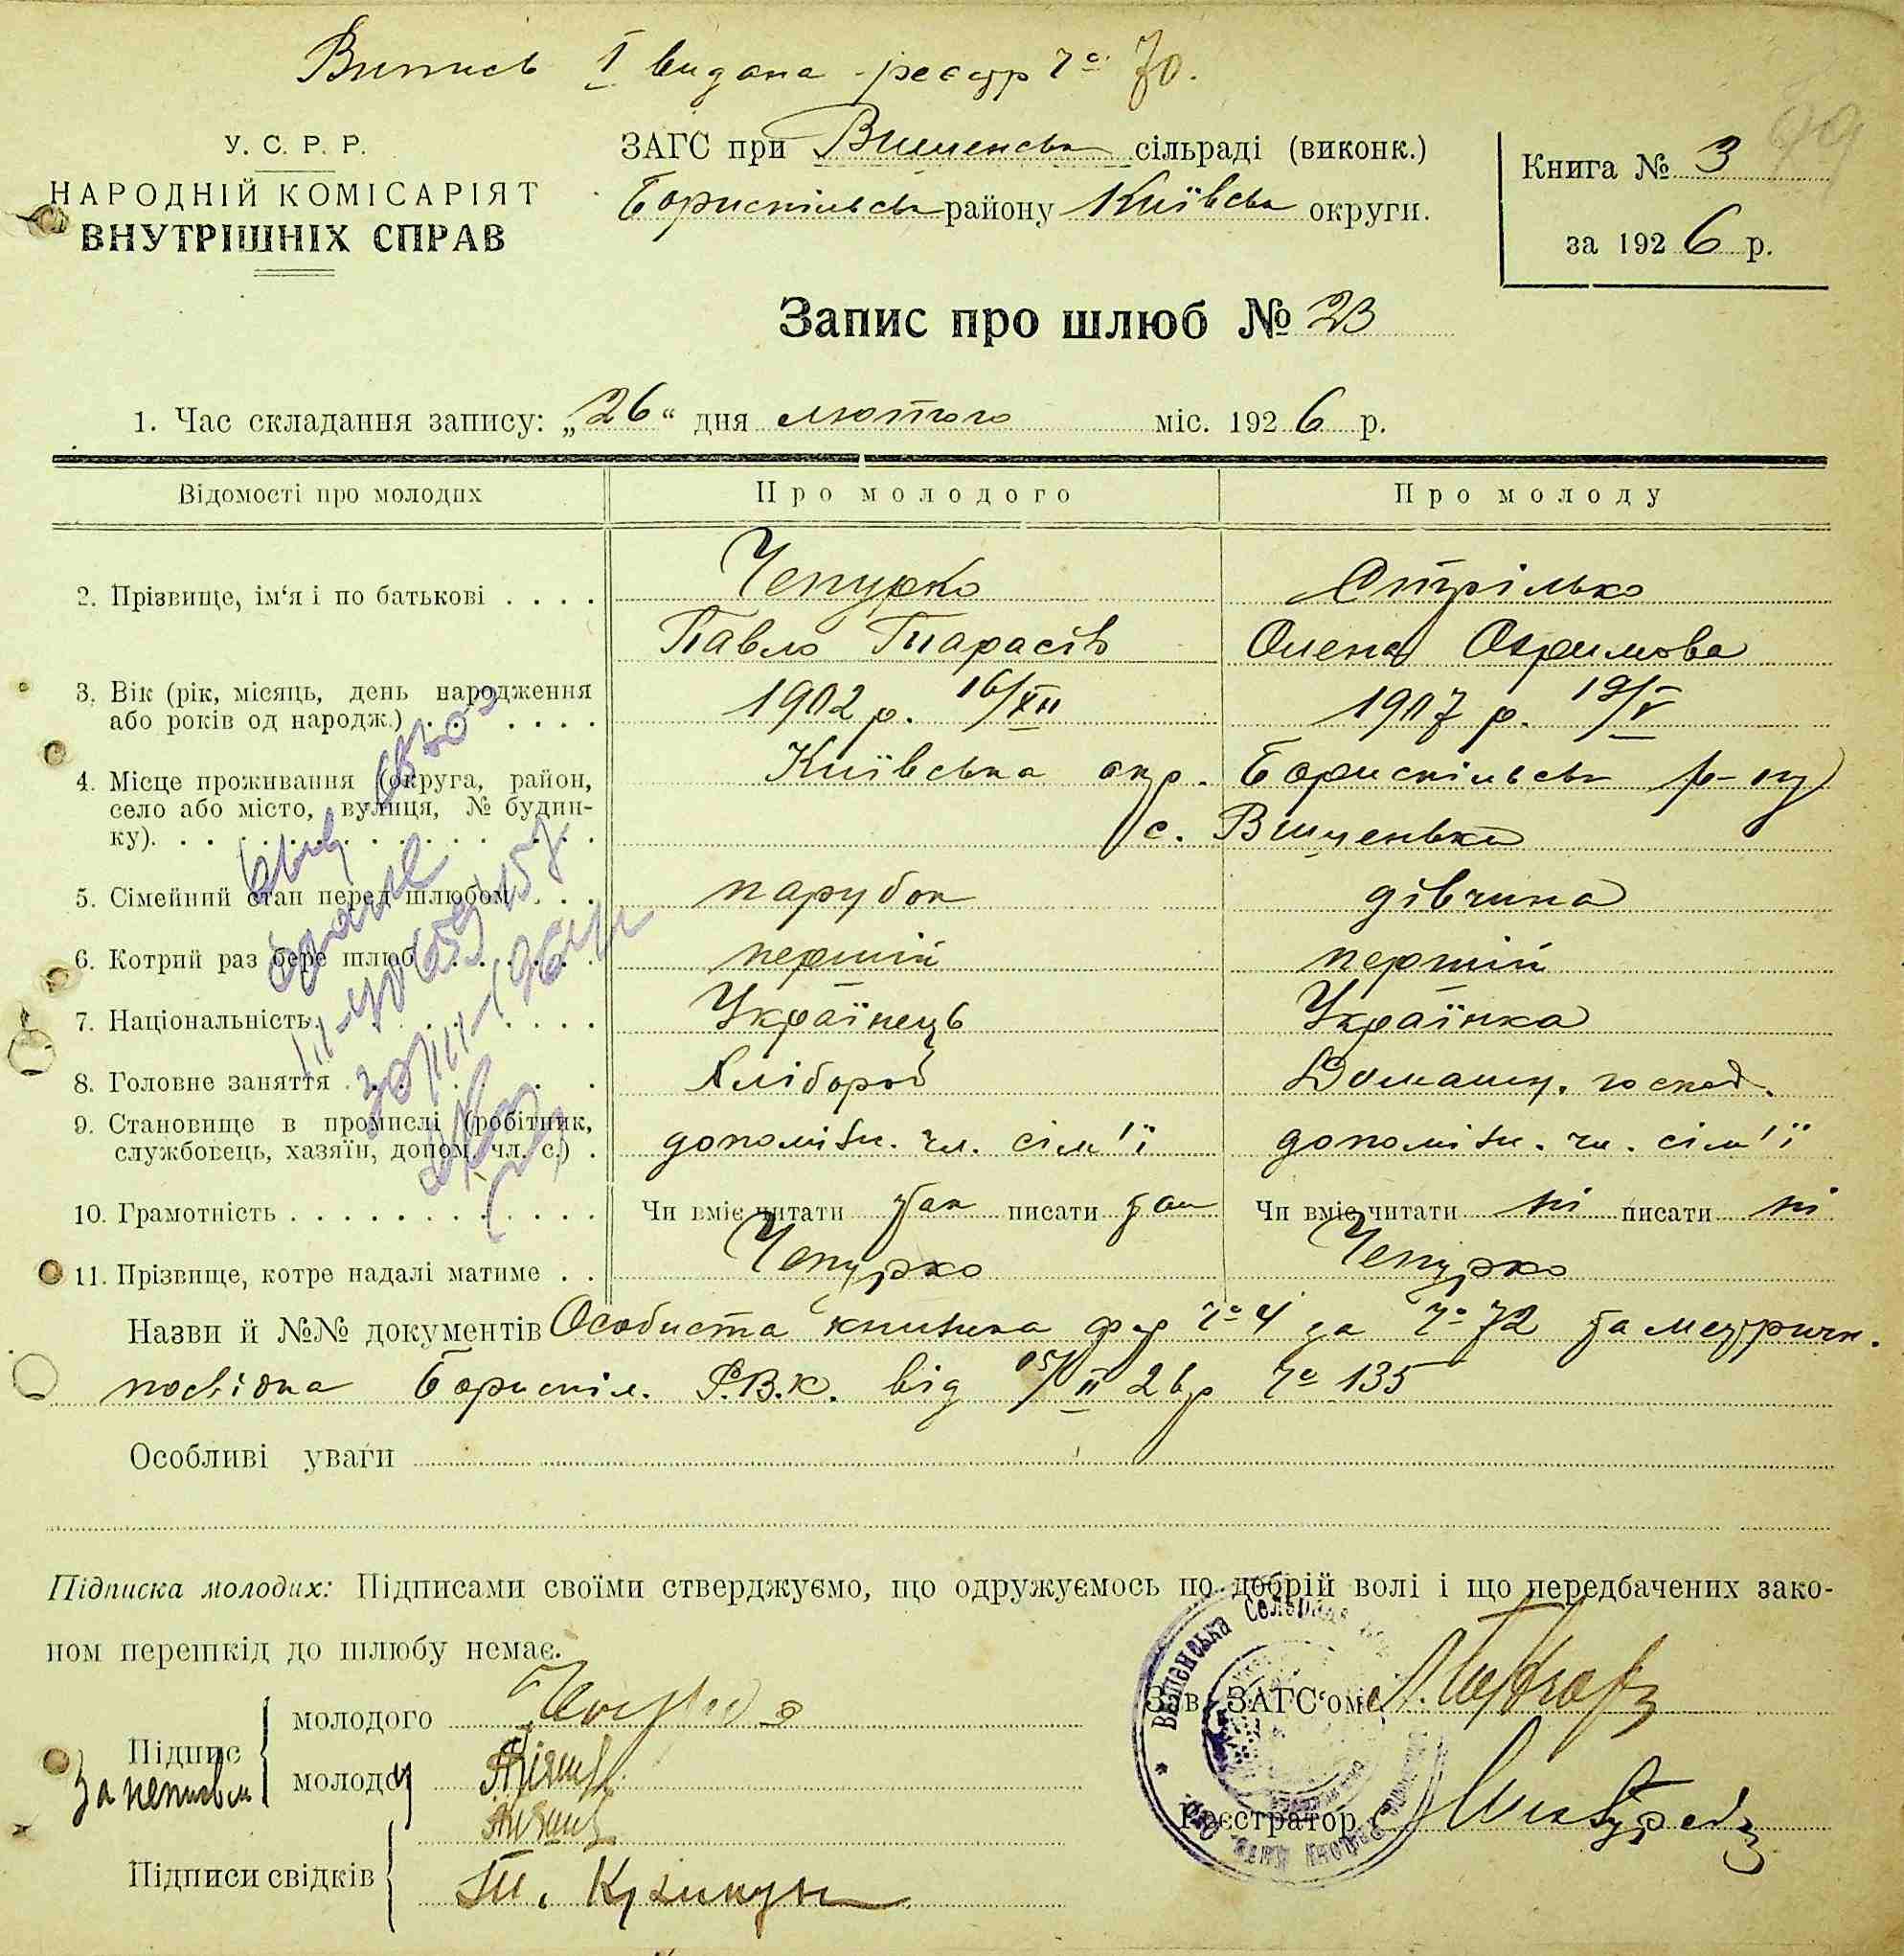 Випись І видана реєстр Чо 70.
99
У. С. Р. Р.
НАРОДНІЙ КОМІСАРІЯТ
ВНУТРІШНІХ СПРАВ
ЗАГС при Вишенськ сільраді (виконк.)
Бориспільськ району Київськ округи.
Книга № 3
за 1926 р.
Запис про шлюб № 23
1. Час складання запису: „26“ дня лютого міс. 1926 р.
Відомості про молодих Про молодого Про молоду
2. Прізвище, ім‘я і по батькові . . . . Чепурко Стрілько
Павло Тарасів Олена Охримова
3. Вік (рік, місяць, день народження 1902 р. 16/XII 1907 р. 19/V
або років од народж.) . . . . . .
4. Місце проживання (округа, район, Київська окр. Бориспільськ р-ну
село або місто, вулиця, № будин-
ку). . . . . . . . . . . . с. Вишеньки
5. Сімейний стан перед шлюбом . . . парубок дівчина
6. Котрий раз бере шлюб . . . . . . перший перший
7. Національність . . . . . . . . Українець Українка
8. Головне заняття . . . . . . . Хлібороб Домашн. господ.
9. Становище в промислі (робітник,
службовець, хазяїн, допом. чл. с.) . допоміжн. чл. сім'ї допоміжн. чл. сім'ї
10. Грамотність . . . . . . . . . . . . Чи вміє читати так писати так Чи вміє читати ні писати ні
11. Прізвище, котре надалі матиме . . Чепурко Чепурко
Назви й №№ документів Особиста книжка фор Чо 4 за Чо 72 та метричн.
посвідка Бориспіл. Р.В.К. від /II 26 р Чо 135
Особливі уваги
Підписка молодих: Підписами своїми стверджуємо, що одружуємось по добрій волі і що передбачених зако-
ном перешкід до шлюбу немає.
Підпис
молодого
молодої
За неписьм
Підписи свідків
Зав. ЗАГС‘ом
Реєстратор
Вишенська